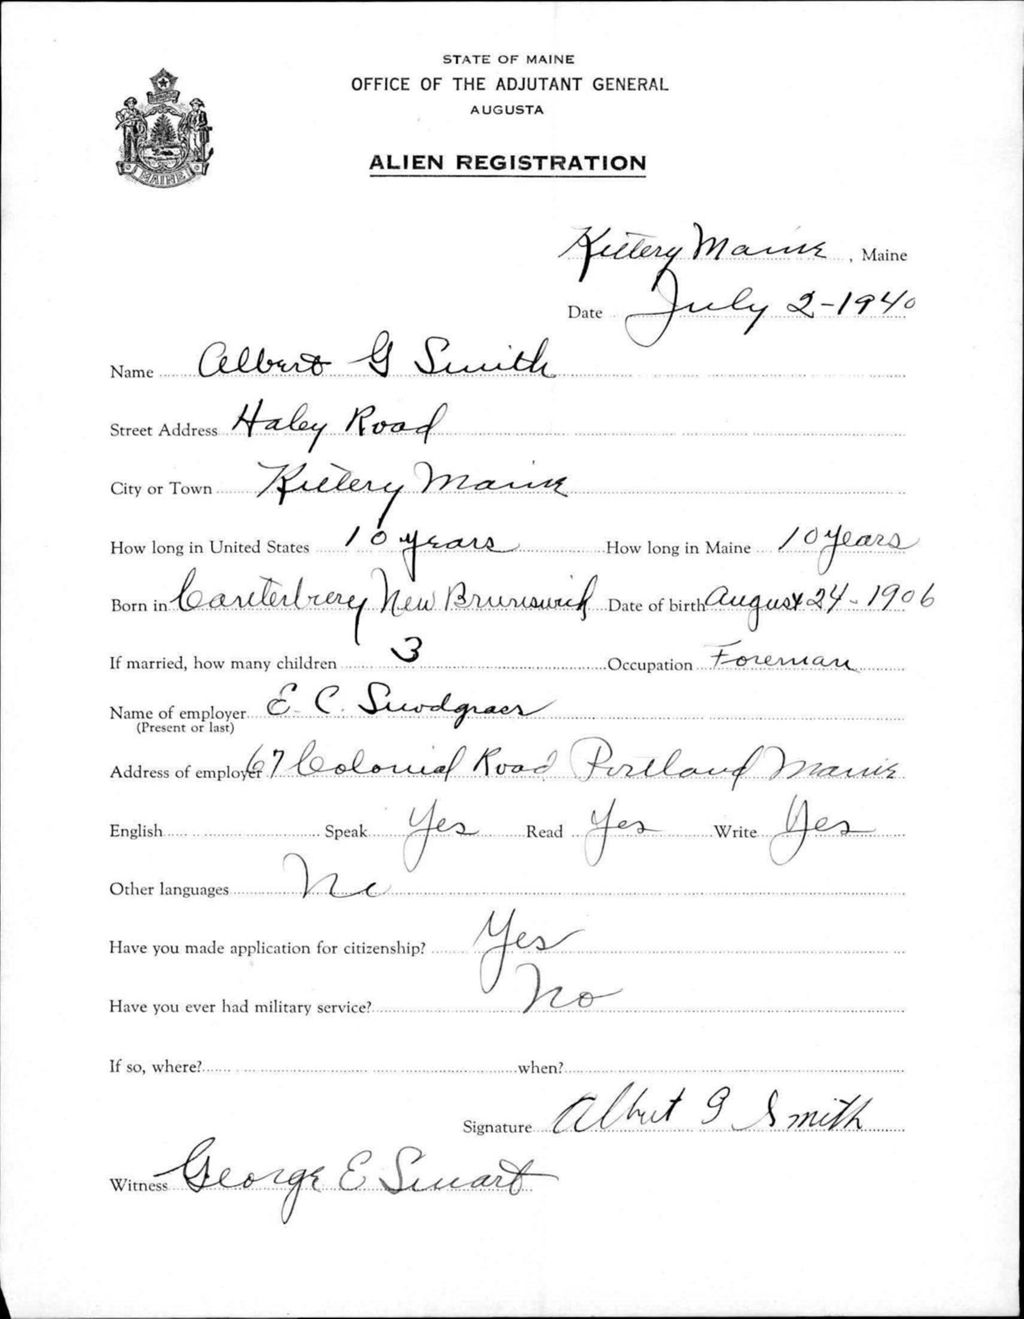 STATE OF MAINE
OFFICE OF THE ADJUTANT GENERAL
AUGUSTA
ALIEN REGISTRATION
MAINE
Kittery Maine, Maine
Date July 2-1940
Name Albert G Smith
Street Address Haley Road
City or Town Kittery Maine
How long in United States 10 years How long in Maine 10 years
Born in Canterbury New Brunswick Date of birth August 24-1906
If married, how many children 3 Occupation Foreman
Name of employer E. C. Snodgrass
(Present or last)
Address of employer 67 Colonial Road Portland Maine
English Speak Yes Read Yes Write Yes
Other languages No
Have you made application for citizenship? Yes
Have you ever had military service? No
If so, where? when?
Signature Albert G Smith
Witness George E